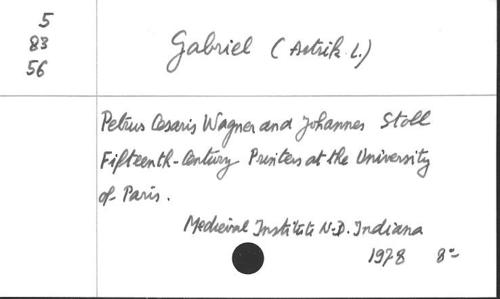 5
83
56
Gabriel (Astrik L.)
Petrus Cesaris Wagner and Johannes Stoll
Fifteenth-Century Printers at the University
of Paris.
Medieival Institute N-D. Indiana
1978 8°